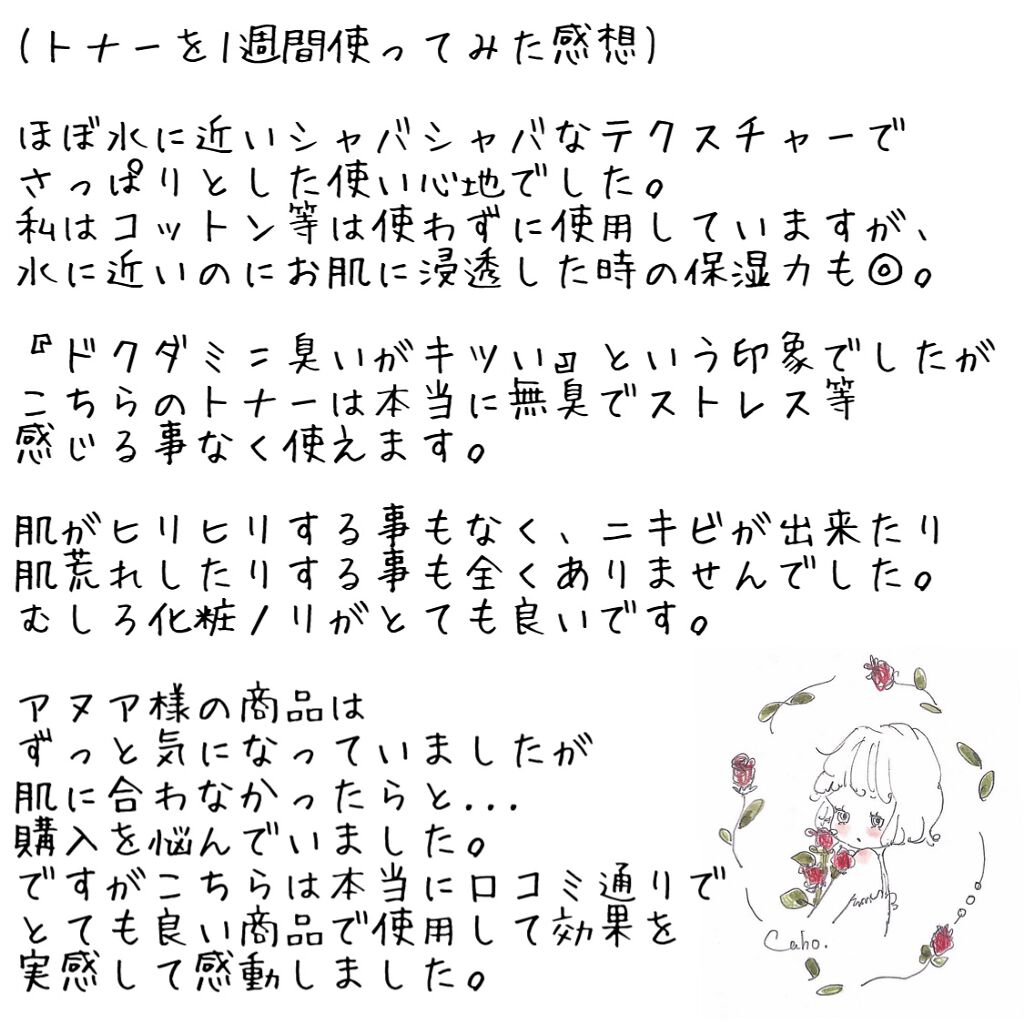 (トナーを1週間使ってみた感想)
ほぼ水に近いシャバシャバなテクスチャーで
さっぱりとした使い心地でした。
私はコットン等は使わずに使用していますが、
水に近いのにお肌に浸透した時の保湿力も◎。
『ドクダミ=臭いがキツい』という印象でしたが
こちらのトナーは本当に無臭でストレス等
感じる事なく使えます。
肌がヒリヒリする事もなく、ニキビが出来たり
肌荒れしたりする事も全くありませんでした。
むしろ化粧ノリがとても良いです。
アヌア様の商品は
ずっと気になっていましたが
肌に合わなかったらと...
購入を悩んでいました。
ですがこちらは本当に口コミ通りで
とても良い商品で使用して効果を
実感して感動しました。
Caho.